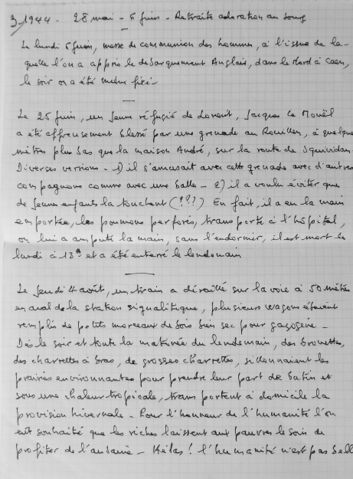 3. 1944. 28 mai - 5 juin - Retraite adoration au bourg
Le lundi 5 juin, messe de communion des hommes, à l'issue de la-
quelle l'on a appris le débarquement Anglais, dans le Nord à Caen,
le soir on a été
Le 25 juin, un jeune réfugié de Lorient, Jacques Le Mouël
a été affreusement blessé par une grenade au Rouillen, à quelques
mètres plus bas que la maison André, sur la route de Squividan
Diverses versions - 1) il s'amusait avec cette grenade avec d'autres
compagnons comme avec une balle - 2) il a voulu éviter que
de jeunes enfants la touchent (???) En fait, il a eu la main
emportée, les poumons perforés, transporté à l'hôpital,
on lui a amputé la main, sans l'endormir, il est mort le
lundi à 13h et a été enterré le lendemain
Le jeudi août, un train a déraillé sur la voie à 50 mètres
en aval de la station signalétique, plusieurs wagons étaient
remplis de petits morceaux de bois bien sec pour gazogène -
Dès le soir et toute la matinée du lendemain, des brouettes,
des charrettes à bras, de grosses charrettes, sillonnaient les
prairies environnantes pour prendre leur part de butin et
sous une chaleur tropicale, transportent à domicile la
provision hivernale - Pour l'honneur de l'humanité l'on
eût souhaité que les riches laissent aux pauvres le soin de
profiter de l'aubaine - Hélas ! l'humanité n'est pas belle